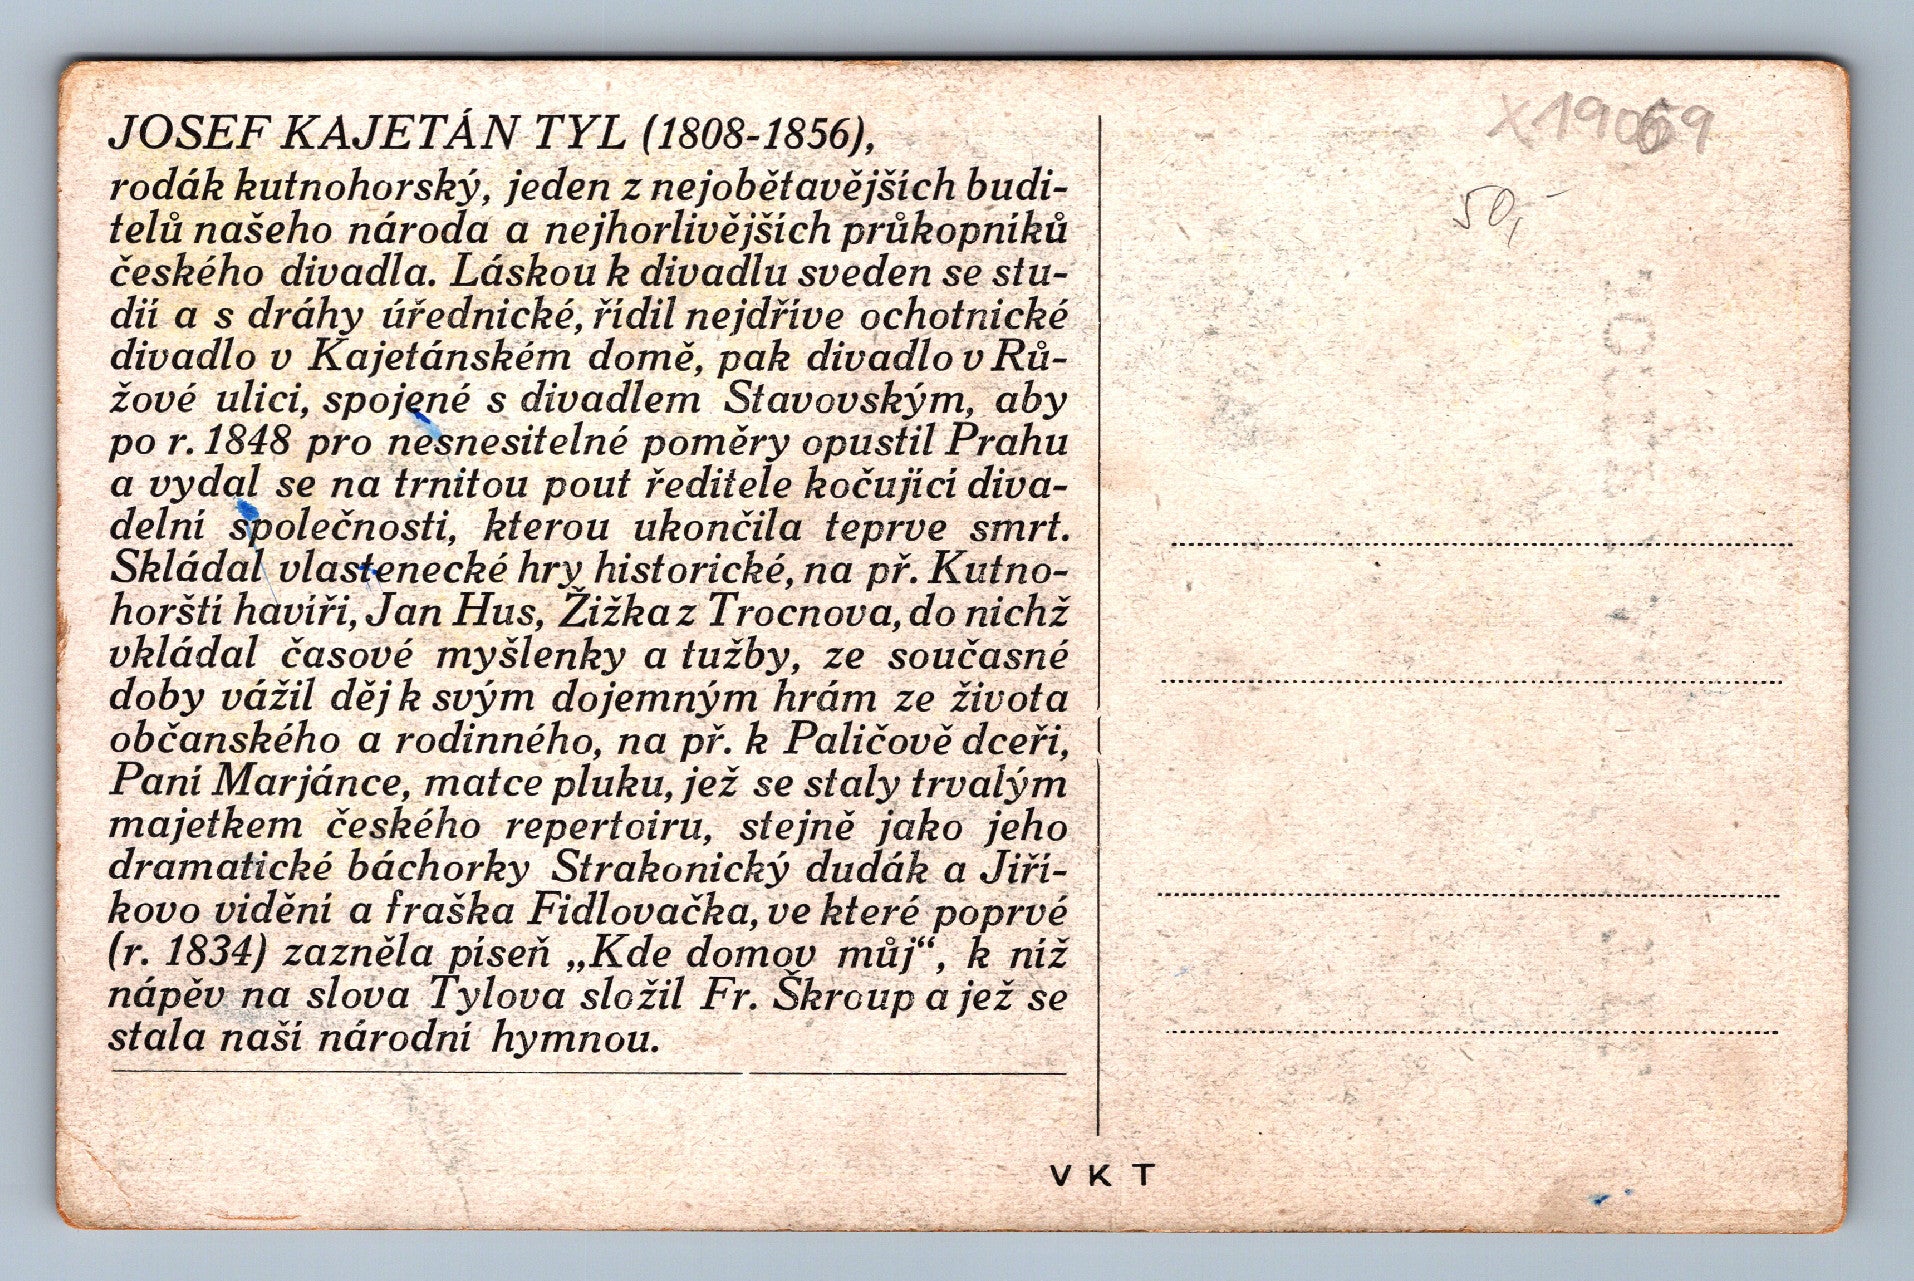 JOSEF KAJETÁN TYL (1808-1856),
rodák kutnohorský, jeden z nejobětavějších budi-
telů našeho národa a nejhorlivějších průkopníků
českého divadla. Láskou k divadlu sveden se stu-
dií a s dráhy úřednické, řídil nejdříve ochotnické
divadlo v Kajetánském domě, pak divadlo v Rů-
žové ulici, spojené s divadlem Stavovským, aby
po r. 1848 pro nesnesitelné poměry opustil Prahu
a vydal se na trnitou pout ředitele kočující diva-
delní společnosti, kterou ukončila teprve smrt.
Skládal vlastenecké hry historické, na př. Kutno-
horští havíři, Jan Hus, Žižka z Trocnova, do nichž
vkládal časové myšlenky a tužby, ze současné
doby vážil děj k svým dojemným hrám ze života
občanského a rodinného, na př. k Paličově dceři,
Paní Marjánce, matce pluku, jež se staly trvalým
majetkem českého repertoiru, stejně jako jeho
dramatické báchorky Strakonický dudák a Jiří-
kovo vidění a fraška Fidlovačka, ve které poprvé
(r. 1834) zazněla píseň „Kde domov můj“, k níž
nápěv na slova Tylova složil Fr. Škroup a jež se
stala naší národní hymnou.
50,-
V K T